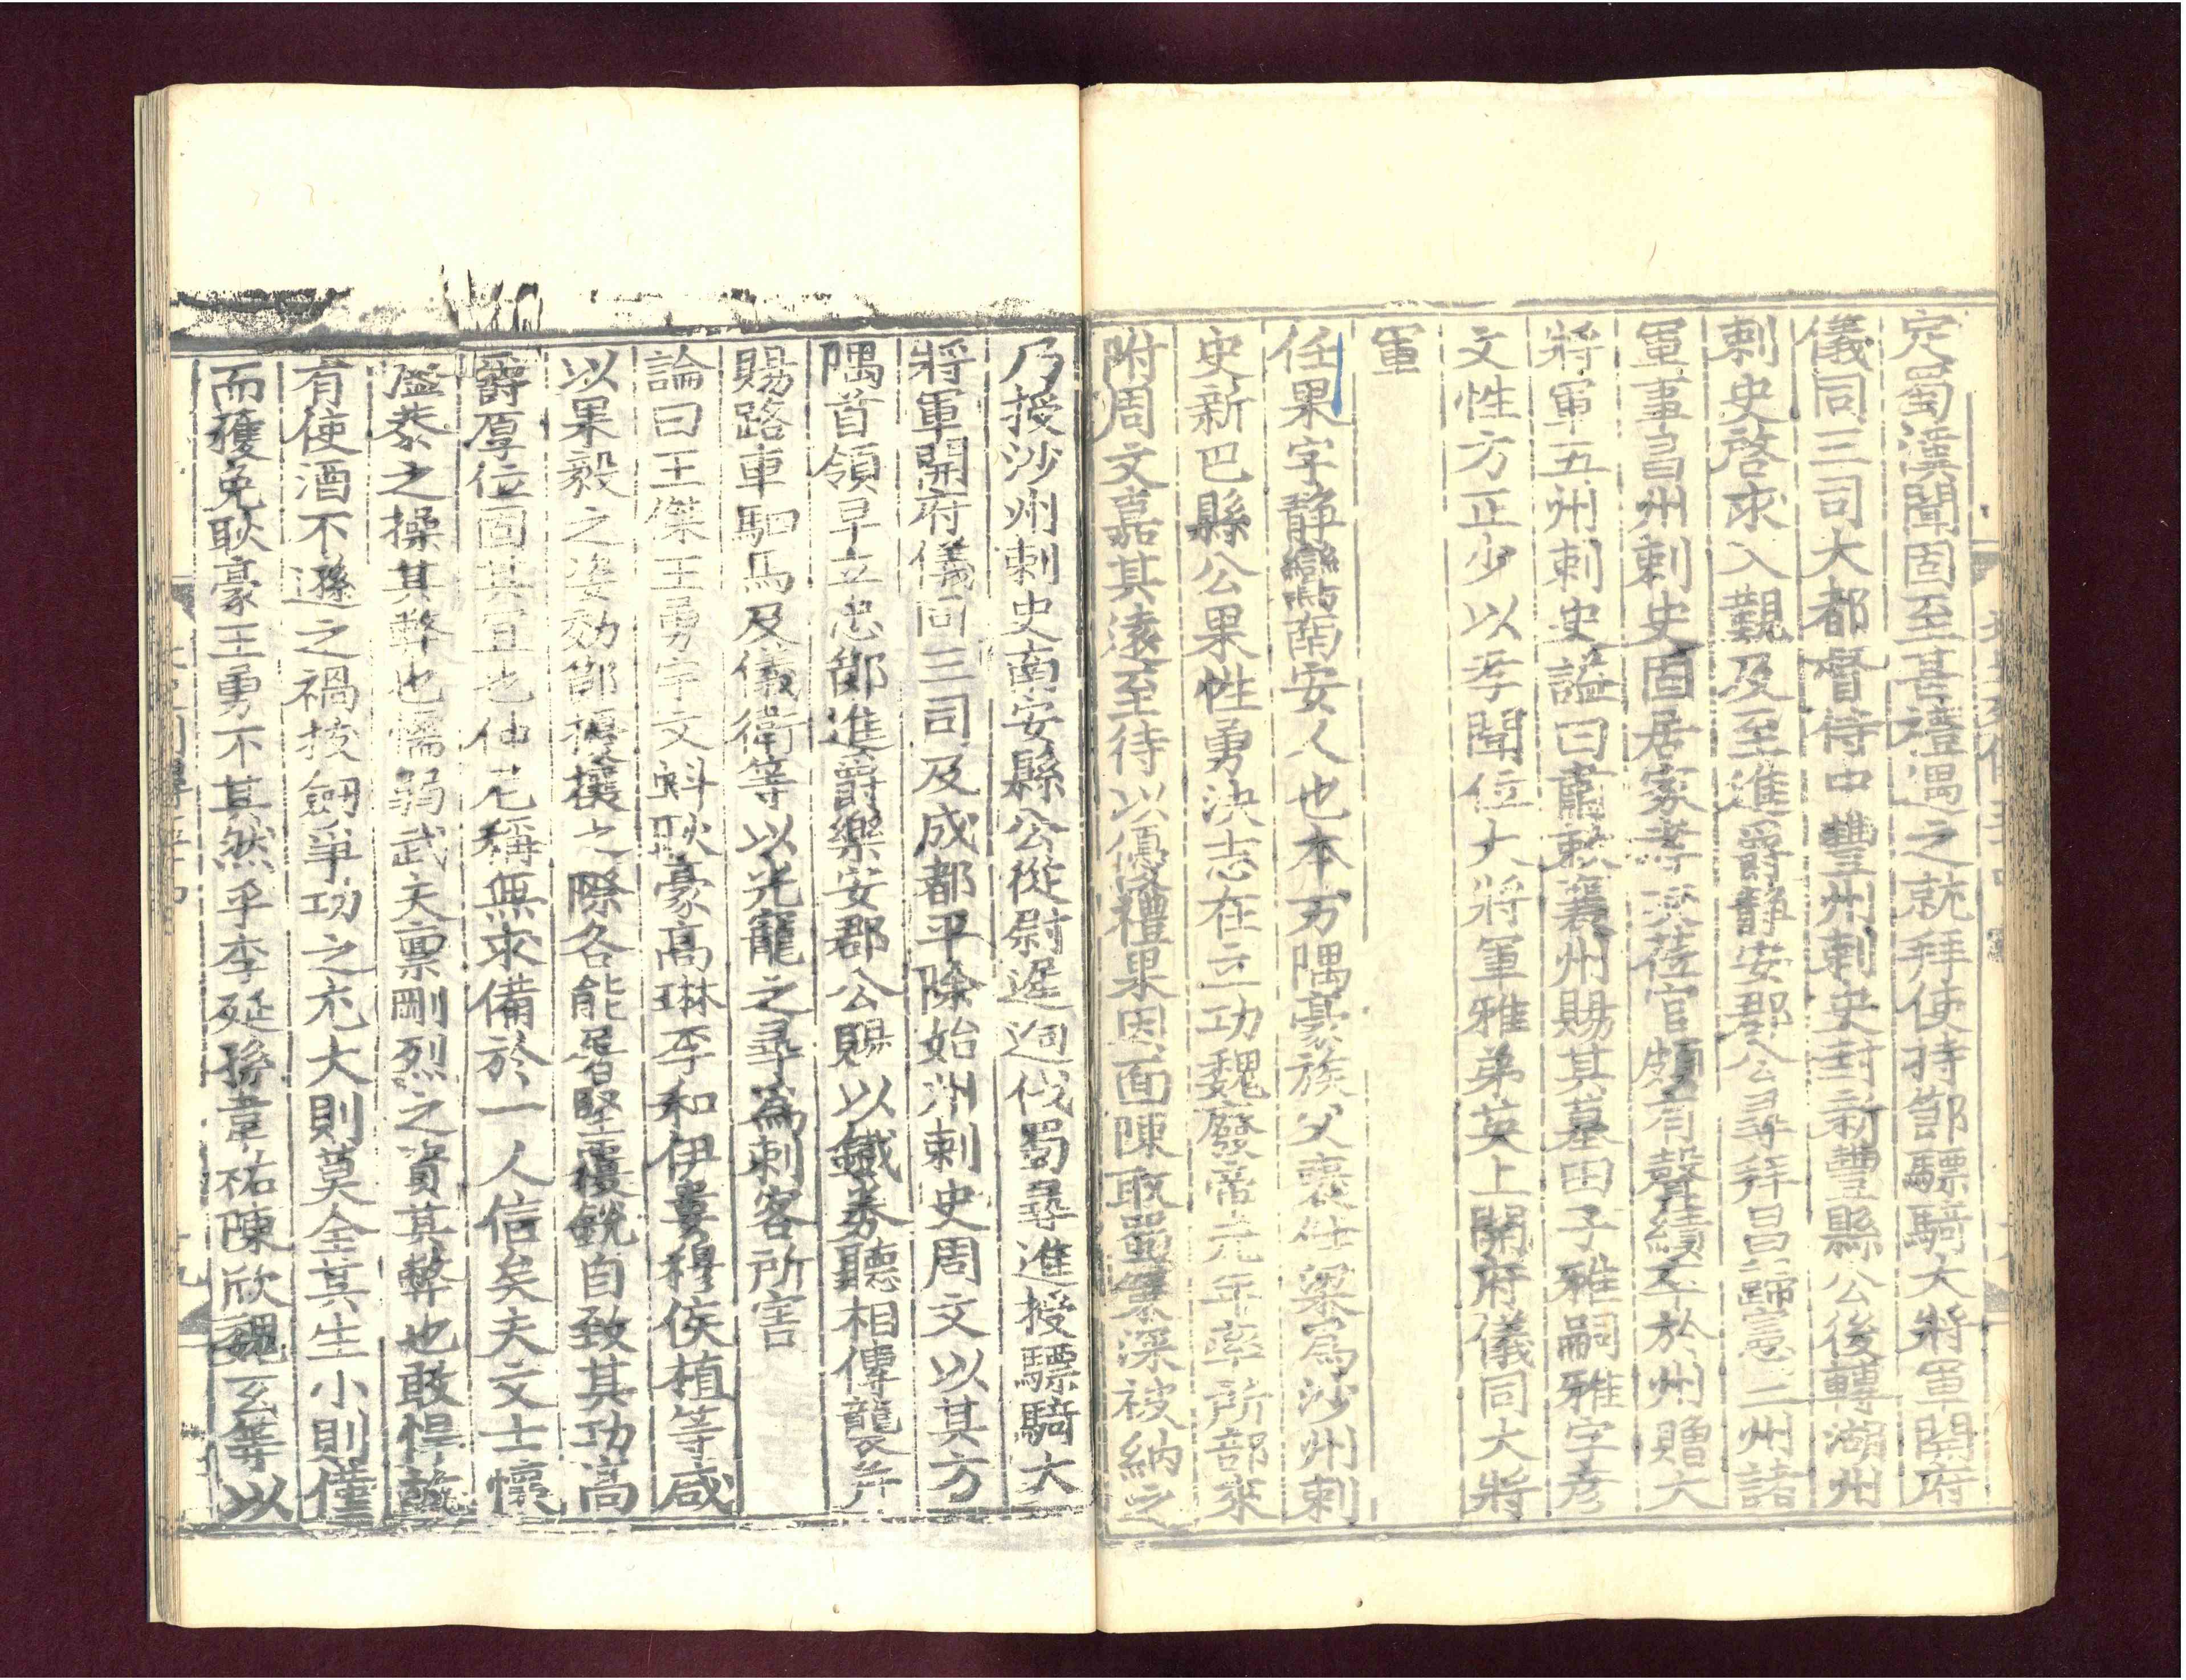 定蜀漢聞固至甚禮遇之就拜使持節驃騎大將軍開府
儀同三司大都督侍中豐州刺史封新豐縣公後轉湖州
刺史啓求入覲及至進爵靜安郡公尋拜昌歸憲三州諸
軍事昌州刺史固居家孝友莅官頗有聲績卒於州贈大
將軍五州刺史謚曰肅敕襄州賜其墓田子雅嗣雅字彦
文性方正少以孝聞位大將軍雅弟英上開府儀同大將
軍
任果字靜鸞南安人也本方隅豪族父褒仕梁爲沙州刺
史新巴縣公果性勇決志在立功魏廢帝元年率所部來
附周文嘉其遠至待以優禮果因面陳取蜀策深被納之
乃授沙州刺史南安縣公從尉遲迥伐蜀尋進授驃騎大
將軍開府儀同三司及成都平除始州刺史周文以其方
隅首領早立忠節進爵樂安郡公賜以鐵券聽相傳襲并
賜路車駟馬及儀衛等以光寵之尋爲刺客所害
論曰王傑王勇宇文虯耿豪高琳李和伊婁穆侯植等咸
以果毅之姿効節擾攘之際各能屠堅覆銳自致其功高
爵厚位固其宜也仲尼稱無求備於一人信矣夫文士懷
溫恭之操其弊也懦弱武夫禀剛烈之資其弊也敢悍故
有使酒不遜之禍拔劒爭功之尤大則莫全其生小則僅
而獲免耿豪王勇不其然乎李延孫韋祐陳欣魏玄等以